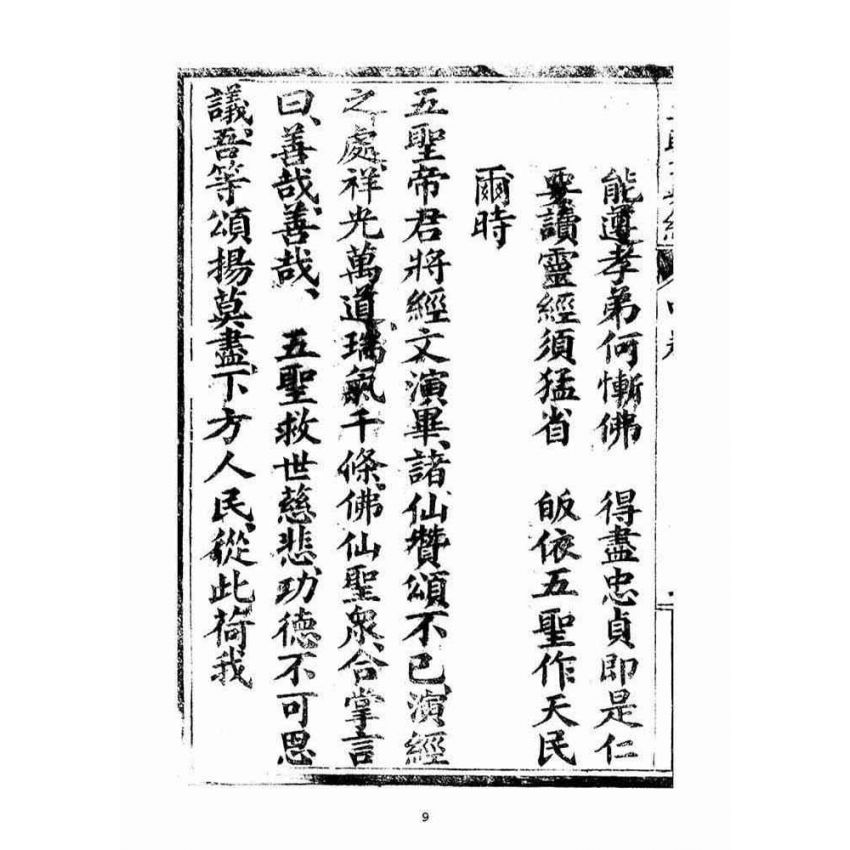 能遵孝弟何慚佛　得盡忠貞即是仁
要讀靈經須猛省　皈依五聖作天民
爾時
五聖帝君將經文演畢、諸仙贊頌不已、演經
之處、祥光萬道、瑞氣千條。佛仙聖衆、合掌言
曰、善哉、善哉、　五聖救世慈悲、功德不可思
議、吾等頌揚莫盡、下方人民、從此荷我
9